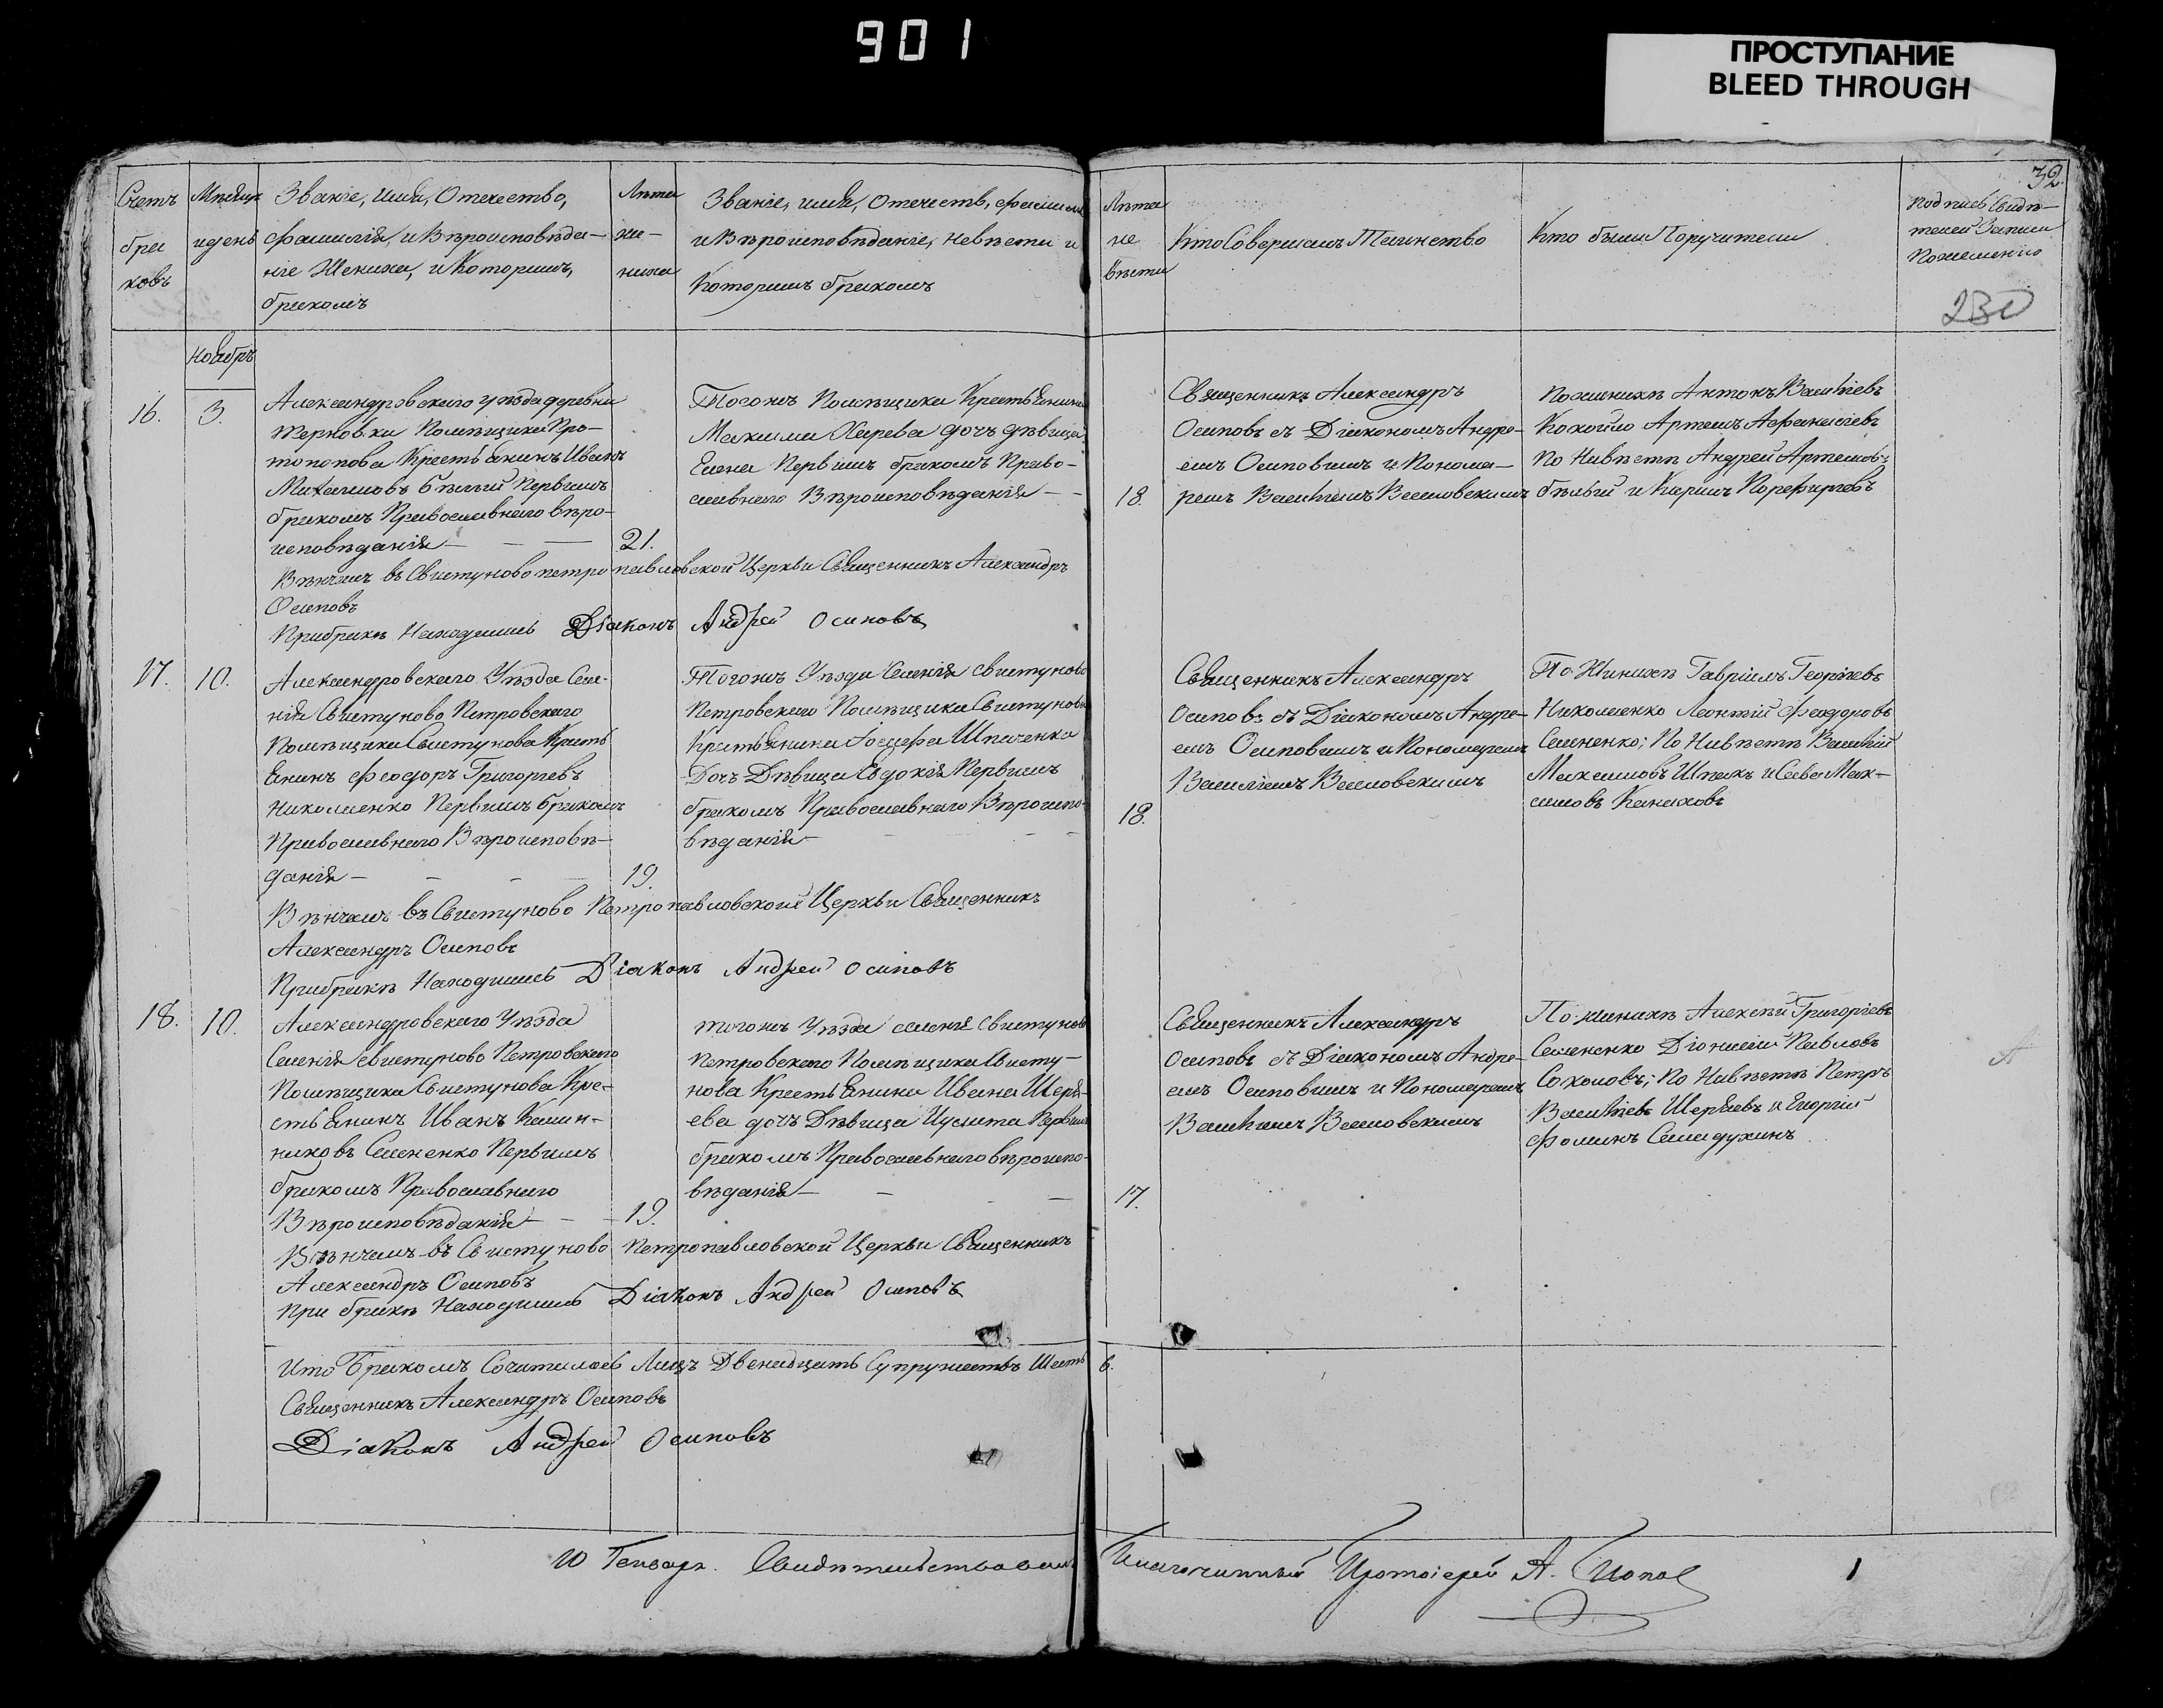 901
ПРОСТУПАНИЕ
BLEED THROUGH
32
230
Счетъ
бра
ковъ
Мѣсяцъ
и день
Званіе, имя, Отечество,
фамилія, и Вѣроисповѣда-
ніе Жениха, и Которымъ,
бракомъ
Лѣта
же-
ниха
Званіе, имя, Отечеств, фамилія
и Вѣроисповѣданіе, невѣсты и
Которымъ бракомъ
Лѣта
не
вѣсты
Кто Совершалъ Таинство
Кто были Поручители
подпись Свидѣ-
телей Записи
по желанію
Ноябрь
16.
3.
Александровскаго уѣзда деревни
терновки Помѣщика Про-
топопова Крестьянинъ Иванъ
Михайловъ бѣлый Первымъ
бракомъ Православнаго вѣро-
исповѣданія
21.
Тогожъ Помѣщика Крестьянина
Максима дочь дѣвица
Елена Первымъ бракомъ Право-
славнаго Вѣроисповѣданія
18.
Священникъ Александръ
Осиповъ съ Діакономъ Андре-
емъ Осиповымъ и Понома-
ремъ Василіемъ Веселовскимъ
По женихѣ Антонъ Васильевъ
Артемъ Афанасіевъ
По Нивѣстѣ Андрей Артемовъ
бѣлый и Порфирьевъ
Вѣнчалъ въ Свистуново петропавловской Церкви Священникъ Александръ
Осиповъ
При бракѣ Находились Діаконъ Андрей Осиповъ
17.
10.
Александровскаго Уѣзда Селе-
нія Свистуново Петровскаго
Помѣщика Свистунова Кресть
янинъ Феодоръ Григорьевъ
Николаенко Первымъ бракомъ
Православнаго Вѣроисповѣ-
данія
19.
Тогожъ Уѣзда Селенія Свистуново
Петровскаго Помѣщика Свистунова
Крестьянина Іосифа Шпаченка
Дочь Дѣвица Евдокія Первымъ
бракомъ Православнаго Вѣроиспо-
вѣданія
18.
Священникъ Александръ
Осиповъ съ Діакономъ Андре-
емъ Осиповымъ и Пономаремъ
Василіемъ Веселовскимъ
По Жинихѣ Гавріилъ Георгіевъ
Николаенко Леонтій Феодоровъ
Семененко; По Нивѣстѣ Василій
Максимовъ Шпакъ и Савва Мак-
симовъ
Вѣнчалъ въ Свистуново Петропавловской Церкви Священникъ
Александръ Осиповъ
При бракѣ Находились Діаконъ Андрей Осиповъ
18.
10.
Александровскаго Уѣзда
Селенія Свистуново Петровскаго
Помѣщика Свистунова Кре-
стьянинъ Иванъ Калин-
никовъ Семененко Первымъ
бракомъ Православнаго
Вѣроисповѣданія
19.
тогожъ Уѣзда селенія Свистуново
петровскаго Помѣщика Свисту-
нова Крестьянина Ивана Шеря-
ева дочь Дѣвица Первымъ
бракомъ Православнаго вѣроиспо-
вѣданія
17.
Священникъ Александръ
Осиповъ съ Діакономъ Андре-
емъ Осиповымъ и Пономаремъ
Василіемъ Веселовскимъ
По жинихѣ Алексѣй Григорьевъ
Семененко Діонисій Павловъ
Соколовъ; По Нивѣстѣ Петръ
Васильевъ Шеряевъ и Георгій
Фоминъ
Вѣнчалъ въ Свистуново Петропавловской Церкви Священникъ
Александръ Осиповъ
При бракѣ Находились Діаконъ Андрей Осиповъ
Итого Бракомъ Сочиталось Лицъ Двенадцать Супружествъ Шесть 6.
Священникъ Александръ Осиповъ
Діаконъ Андрей Осиповъ
10 Генваря. Свидѣтельствовалъ Благочинный Протоіерей А. Попов
1